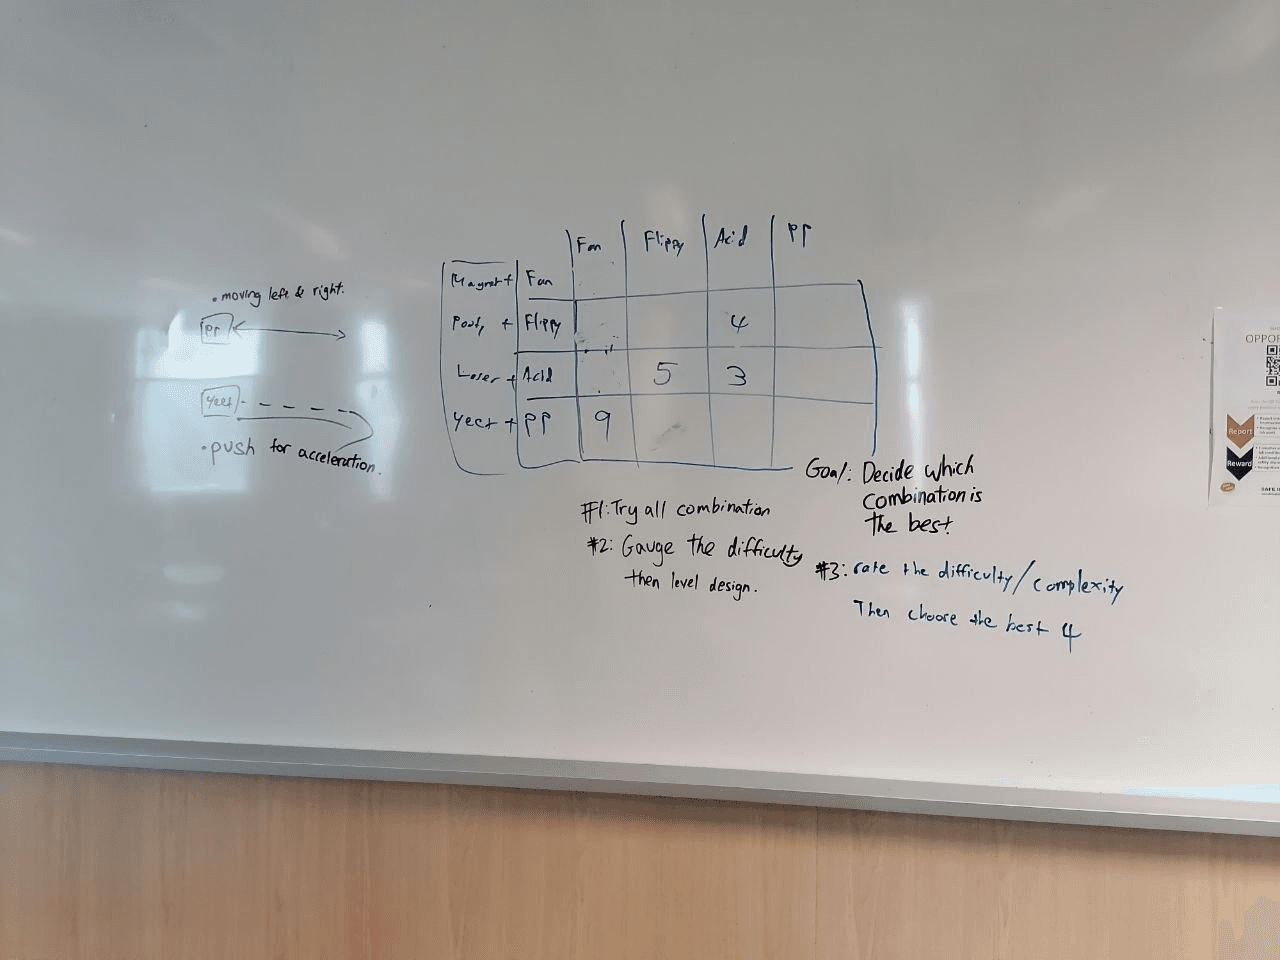 Fan Flippy Acid PP
Magnet + Fan
+ Flippy 4
+ Acid 5 3
Yeet + PP 9
• moving left & right.
PP
Yeet
• push for acceleration.
Goal: Decide which
combination is
the best.
#1: Try all combination
#2: Gauge the difficulty
then level design.
#3: rate the difficulty/complexity
Then choose the best 4
OPPOR
Report
Reward